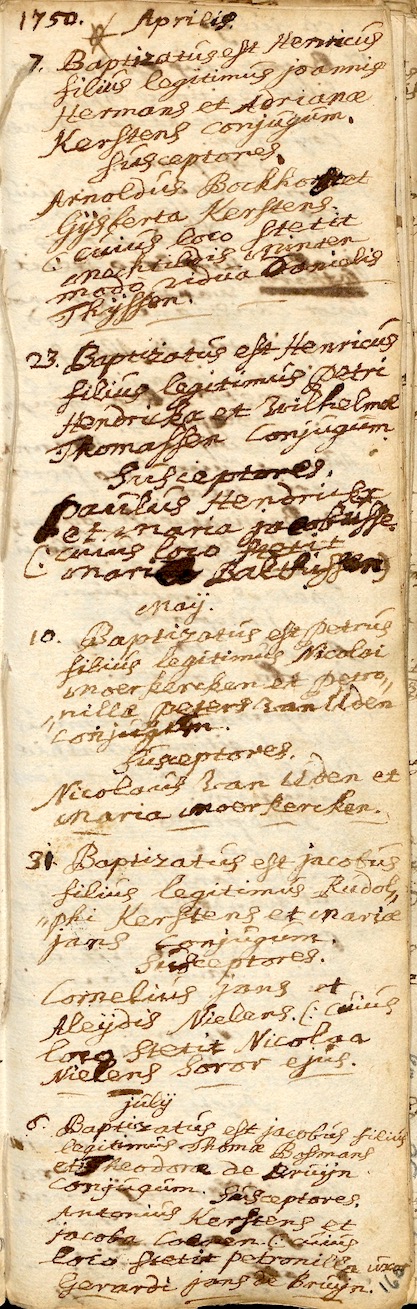 1750. Aprilis.
7. Baptizatus est Henricus
filius legitimus joannis
Hermans et Adrianæ
Kerstens conjugum.
Susceptores.
Arnoldus Bockhorst et
Gijsberta Kerstens.
(: cuius loco stetit
Mechtildis
modo vidua Danielis
Thijssen.
23. Baptizatus est Henricus
filius legitimus Petri
Hendrickx et Wilhelmæ
Thomassen conjugum.
Susceptores.
Paulus Hendrickx
et Maria jacobusse.
(: cuius loco stetit
Maria Balthussen)
May.
10. Baptizatus est Petrus
filius legitimus Nicolai
Moerkercken et Petro„
„nillæ Peters van Uden
conjugum.
Susceptores.
Nicolaus van Uden et
Maria Moerkercken.
31. Baptizatus est jacobus
filius legitimus Rudol„
„phi Kerstens et Mariæ
jans conjugum.
Susceptores.
Cornelius jans et
Aleydis Nielens. (: cuius
loco stetit Nicolaa
Nielens soror ejus.
july
6. Baptizatus est jacobus filius
legitimus Thomæ Bosmans
et Theodoræ de Bruijn
conjugum. Susceptores.
Antonius Kerstens et
jacoba (: cuius
loco stetit Petronilla uxor
Gerardi jans de Bruijn.